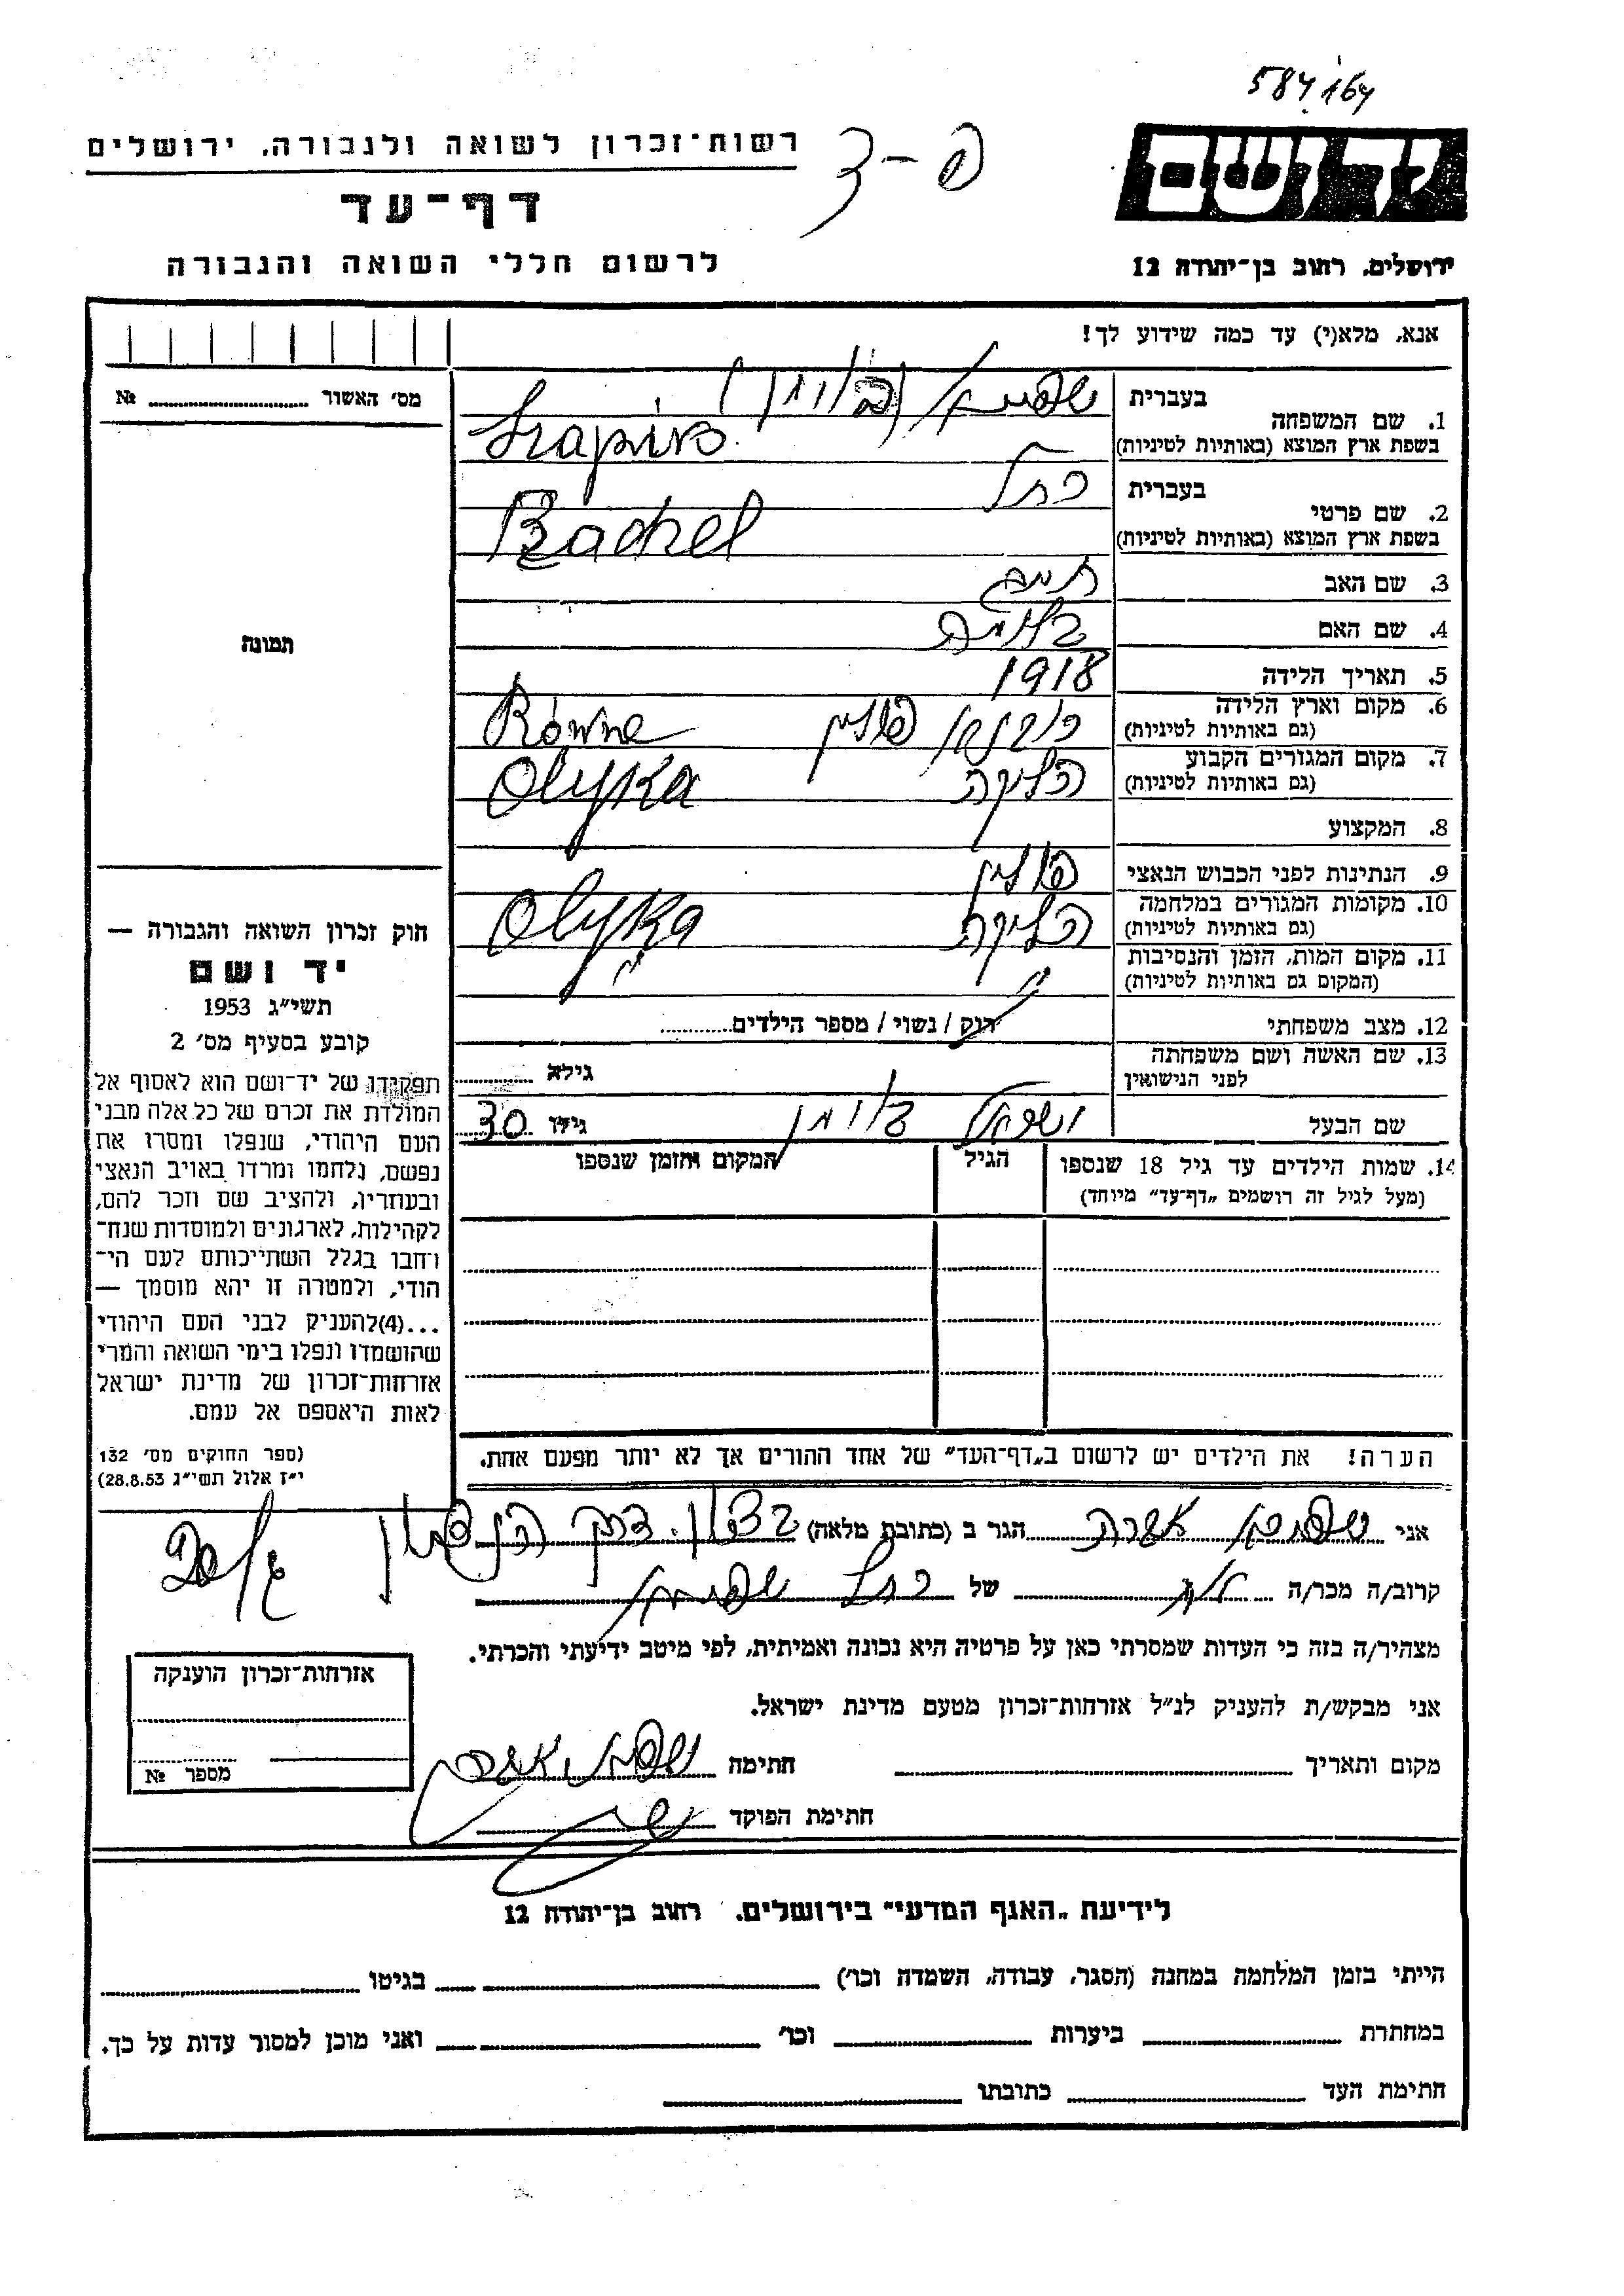 584164
יד ושם
פ-ד
רשות־זכרון לשואה ולגבורה, ירושלים
דף־עד
לרשום חללי השואה והגבורה
ירושלים, רחוב בן־יהודה 12
אנא, מלא(י) עד כמה שידוע לך!
מס׳ האשור № ........
תמונה
1. שם המשפחה בעברית שפירא
בשפת ארץ המוצא (באותיות לטיניות) Szapiro
2. שם פרטי בעברית רחל
בשפת ארץ המוצא (באותיות לטיניות) Rachel
3. שם האב חיים
4. שם האם
5. תאריך הלידה 1918
6. מקום וארץ הלידה (גם באותיות לטיניות) רובנא פולין Równe
7. מקום המגורים הקבוע (גם באותיות לטיניות) אליקה Olyka
8. המקצוע
9. הנתינות לפני הכבוש הנאצי פולין
10. מקומות המגורים במלחמה (גם באותיות לטיניות) אליקה Olyka
11. מקום המות, הזמן והנסיבות (המקום גם באותיות לטיניות) " "
12. מצב משפחתי רוק / נשוי / מספר הילדים ........
13. שם האשה ושם משפחתה לפני הנישואין גילה ........
שם הבעל ישראל גילו 30
14. שמות הילדים עד גיל 18 שנספו הגיל המקום והזמן שנספו
(מעל לגיל זה רושמים „דף־עד״ מיוחד)
הערה! את הילדים יש לרשום ב„דף־העד״ של אחד ההורים אך לא יותר מפעם אחת.
חוק זכרון השואה והגבורה —
יד ושם
תשי״ג 1953
קובע בסעיף מס׳ 2
תפקידו של יד־ושם הוא לאסוף אל
המולדת את זכרם של כל אלה מבני
העם היהודי, שנפלו ומסרו את
נפשם, נלחמו ומרדו באויב הנאצי
ובעוזריו, ולהציב שם וזכר להם,
לקהילות, לארגונים ולמוסדות שנח־
רבו בגלל השתייכותם לעם הי־
הודי, ולמטרה זו יהא מוסמך —
...(4)להעניק לבני העם היהודי
שהושמדו ונפלו בימי השואה והמרי
אזרחות־זכרון של מדינת ישראל
לאות היאספם אל עמם.
(ספר החוקים מס׳ 132
י״ז אלול תשי״ג 28.8.53)
אני שפירא הגר ב (כתובת מלאה)
קרוב/ה מכר/ה של רחל שפירא
מצהיר/ה בזה כי העדות שמסרתי כאן על פרטיה היא נכונה ואמיתית, לפי מיטב ידיעתי והכרתי.
אני מבקש/ת להעניק לנ״ל אזרחות־זכרון מטעם מדינת ישראל.
מקום ותאריך חתימה
חתימת הפוקד
אזרחות־זכרון הוענקה
מספר №
לידיעת „האגף המדעי״ בירושלים, רחוב בן־יהודה 12
הייתי בזמן המלחמה במחנה (הסגר, עבודה, השמדה וכו׳) בגיטו
במחתרת ביערות וכו׳ ואני מוכן למסור עדות על כך.
חתימת העד כתובתו